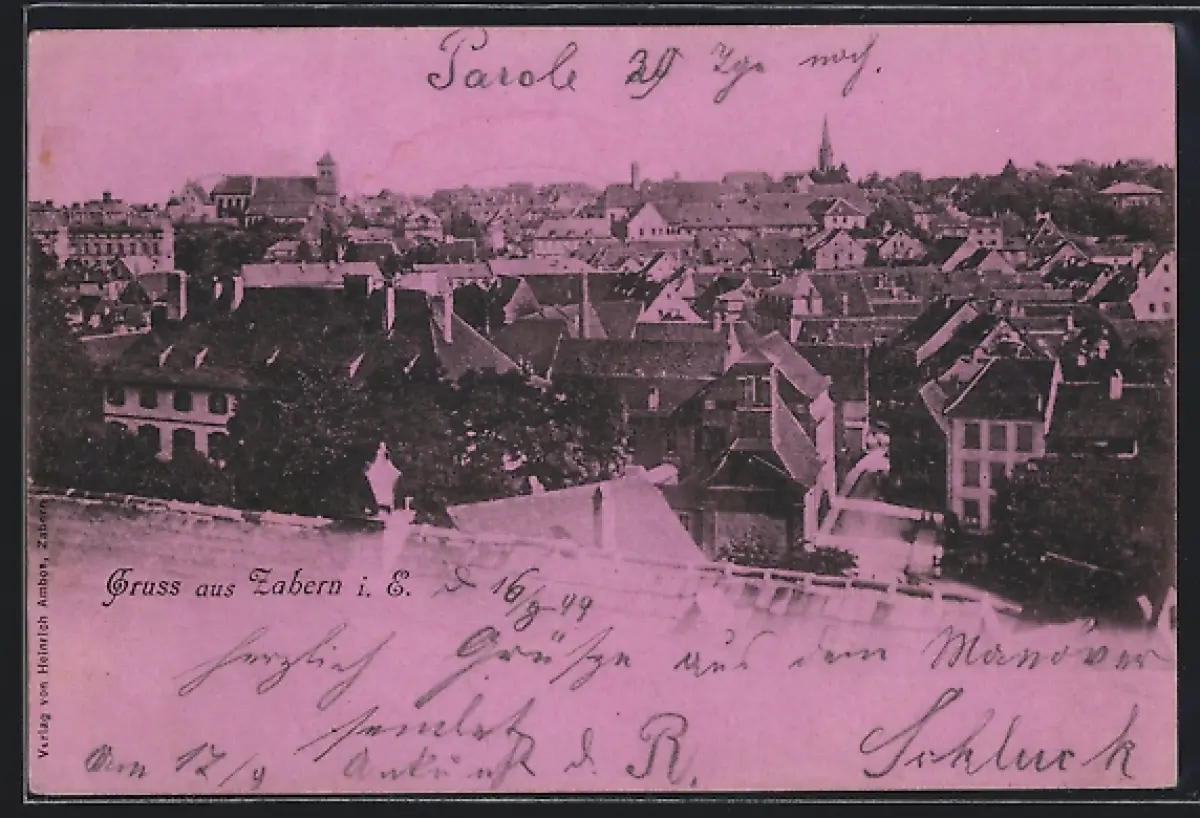 Parole 29 Tge noch.
Gruss aus Zabern i. E. d 16/8 99
herzlich Grüße aus dem Manöver
sendet Schluck
Am 17/9 Ankunft d. R.
Verlag von Heinrich Ambos, Zabern